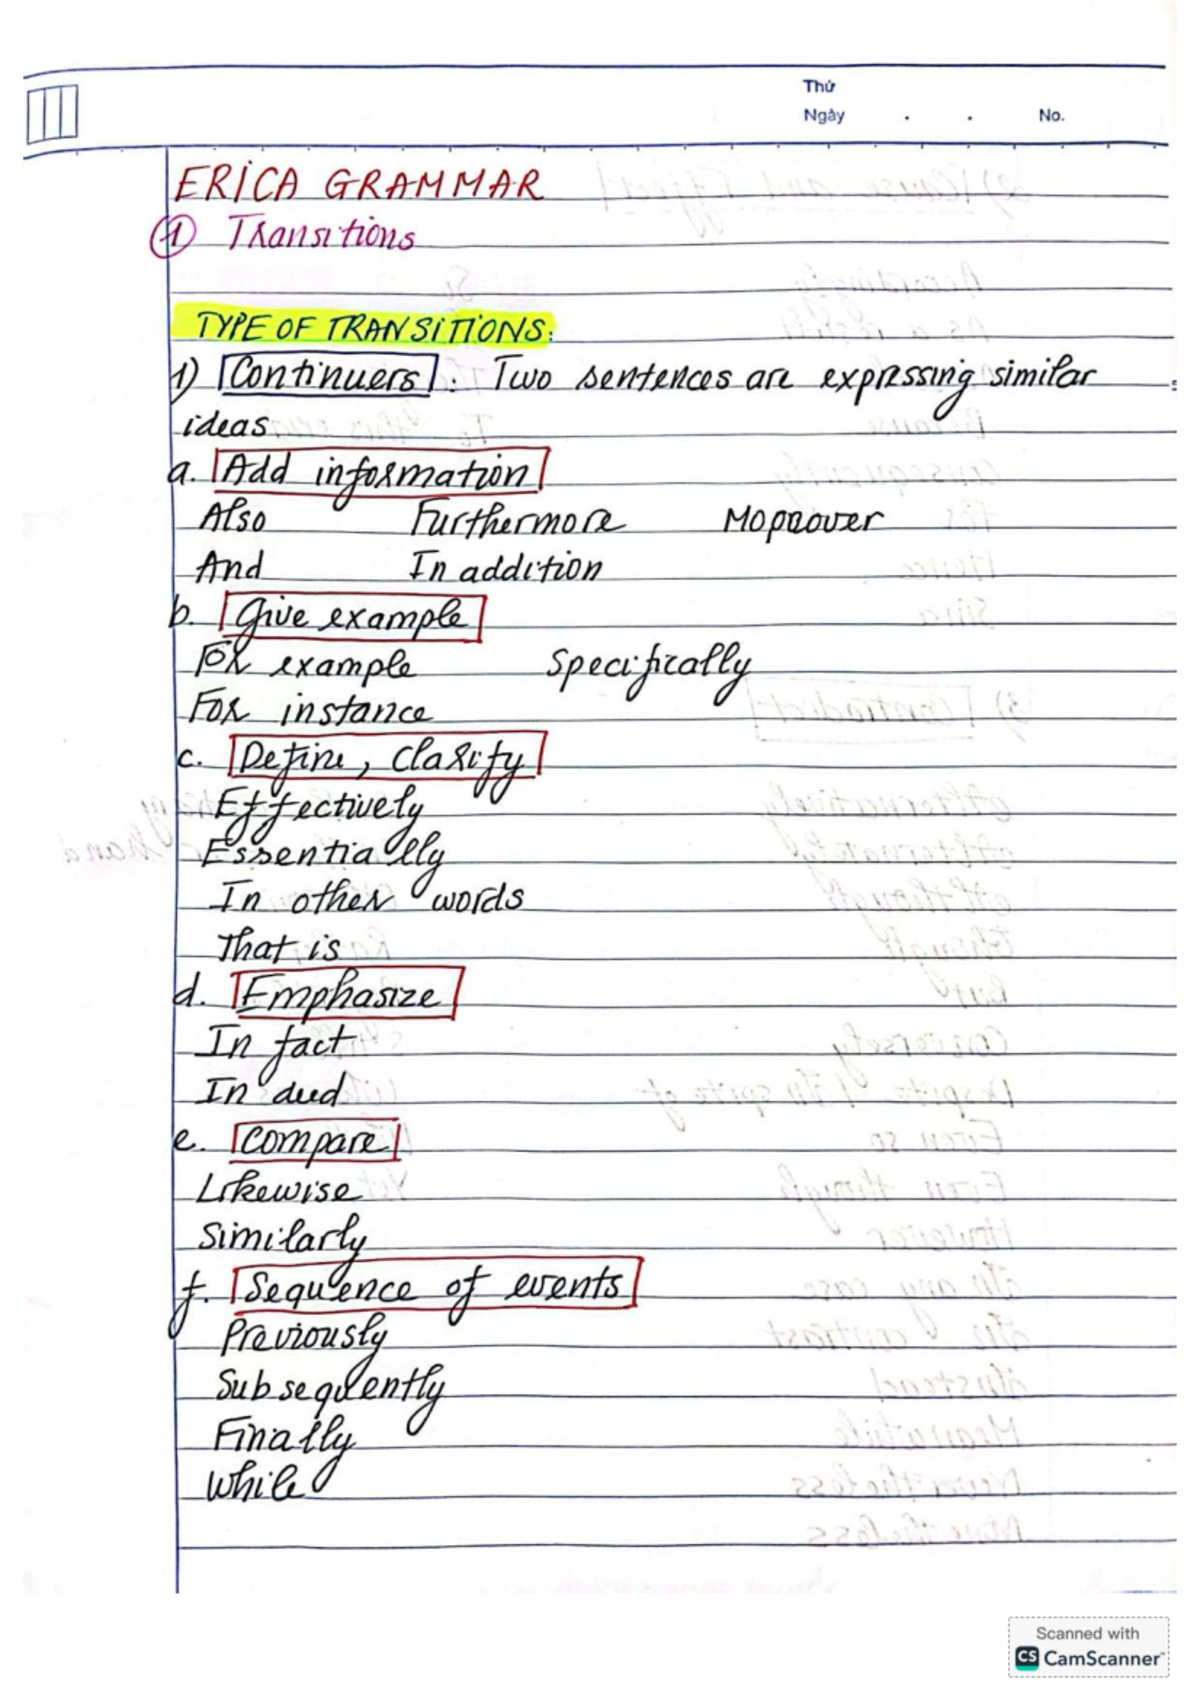 Thứ
Ngày . . No.
ERICA GRAMMAR
1 Transitions
TYPE OF TRANSITIONS:
1) Continuers: Two sentences are expressing similar
ideas
a. Add information
Also Furthermore Moreover
And In addition
b. Give example
For example Specifically
For instance
c. Define, clarify
Effectively
Essentially
In other words
That is
d. Emphasize
In fact
In deed
e. Compare
Likewise
Similarly
f. Sequence of events
Previously
Subsequently
Finally
While
Scanned with
CS CamScanner